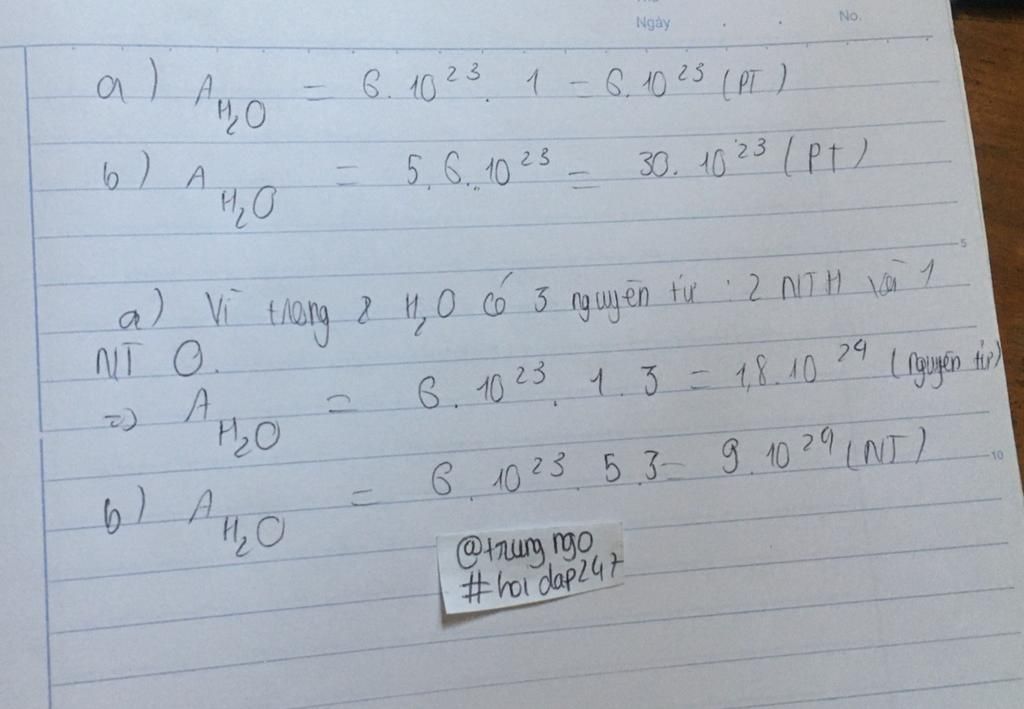 Ngày . . No.
a) A H₂O = 6.10²³. 1 = 6.10²³ (PT)
b) A H₂O = 5.6.10²³ = 30.10²³ (Pt)
5
a) Vì trong H₂O có 3 nguyên tử : 2 NTH và 1
NT O.
=> A H₂O = 6.10²³. 1. 3 = 1,8.10²⁴ (nguyên tử)
b) A H₂O = 6.10²³. 5.3 = 9.10²⁴ (NT)
10
@trung ngo
#hoidap247